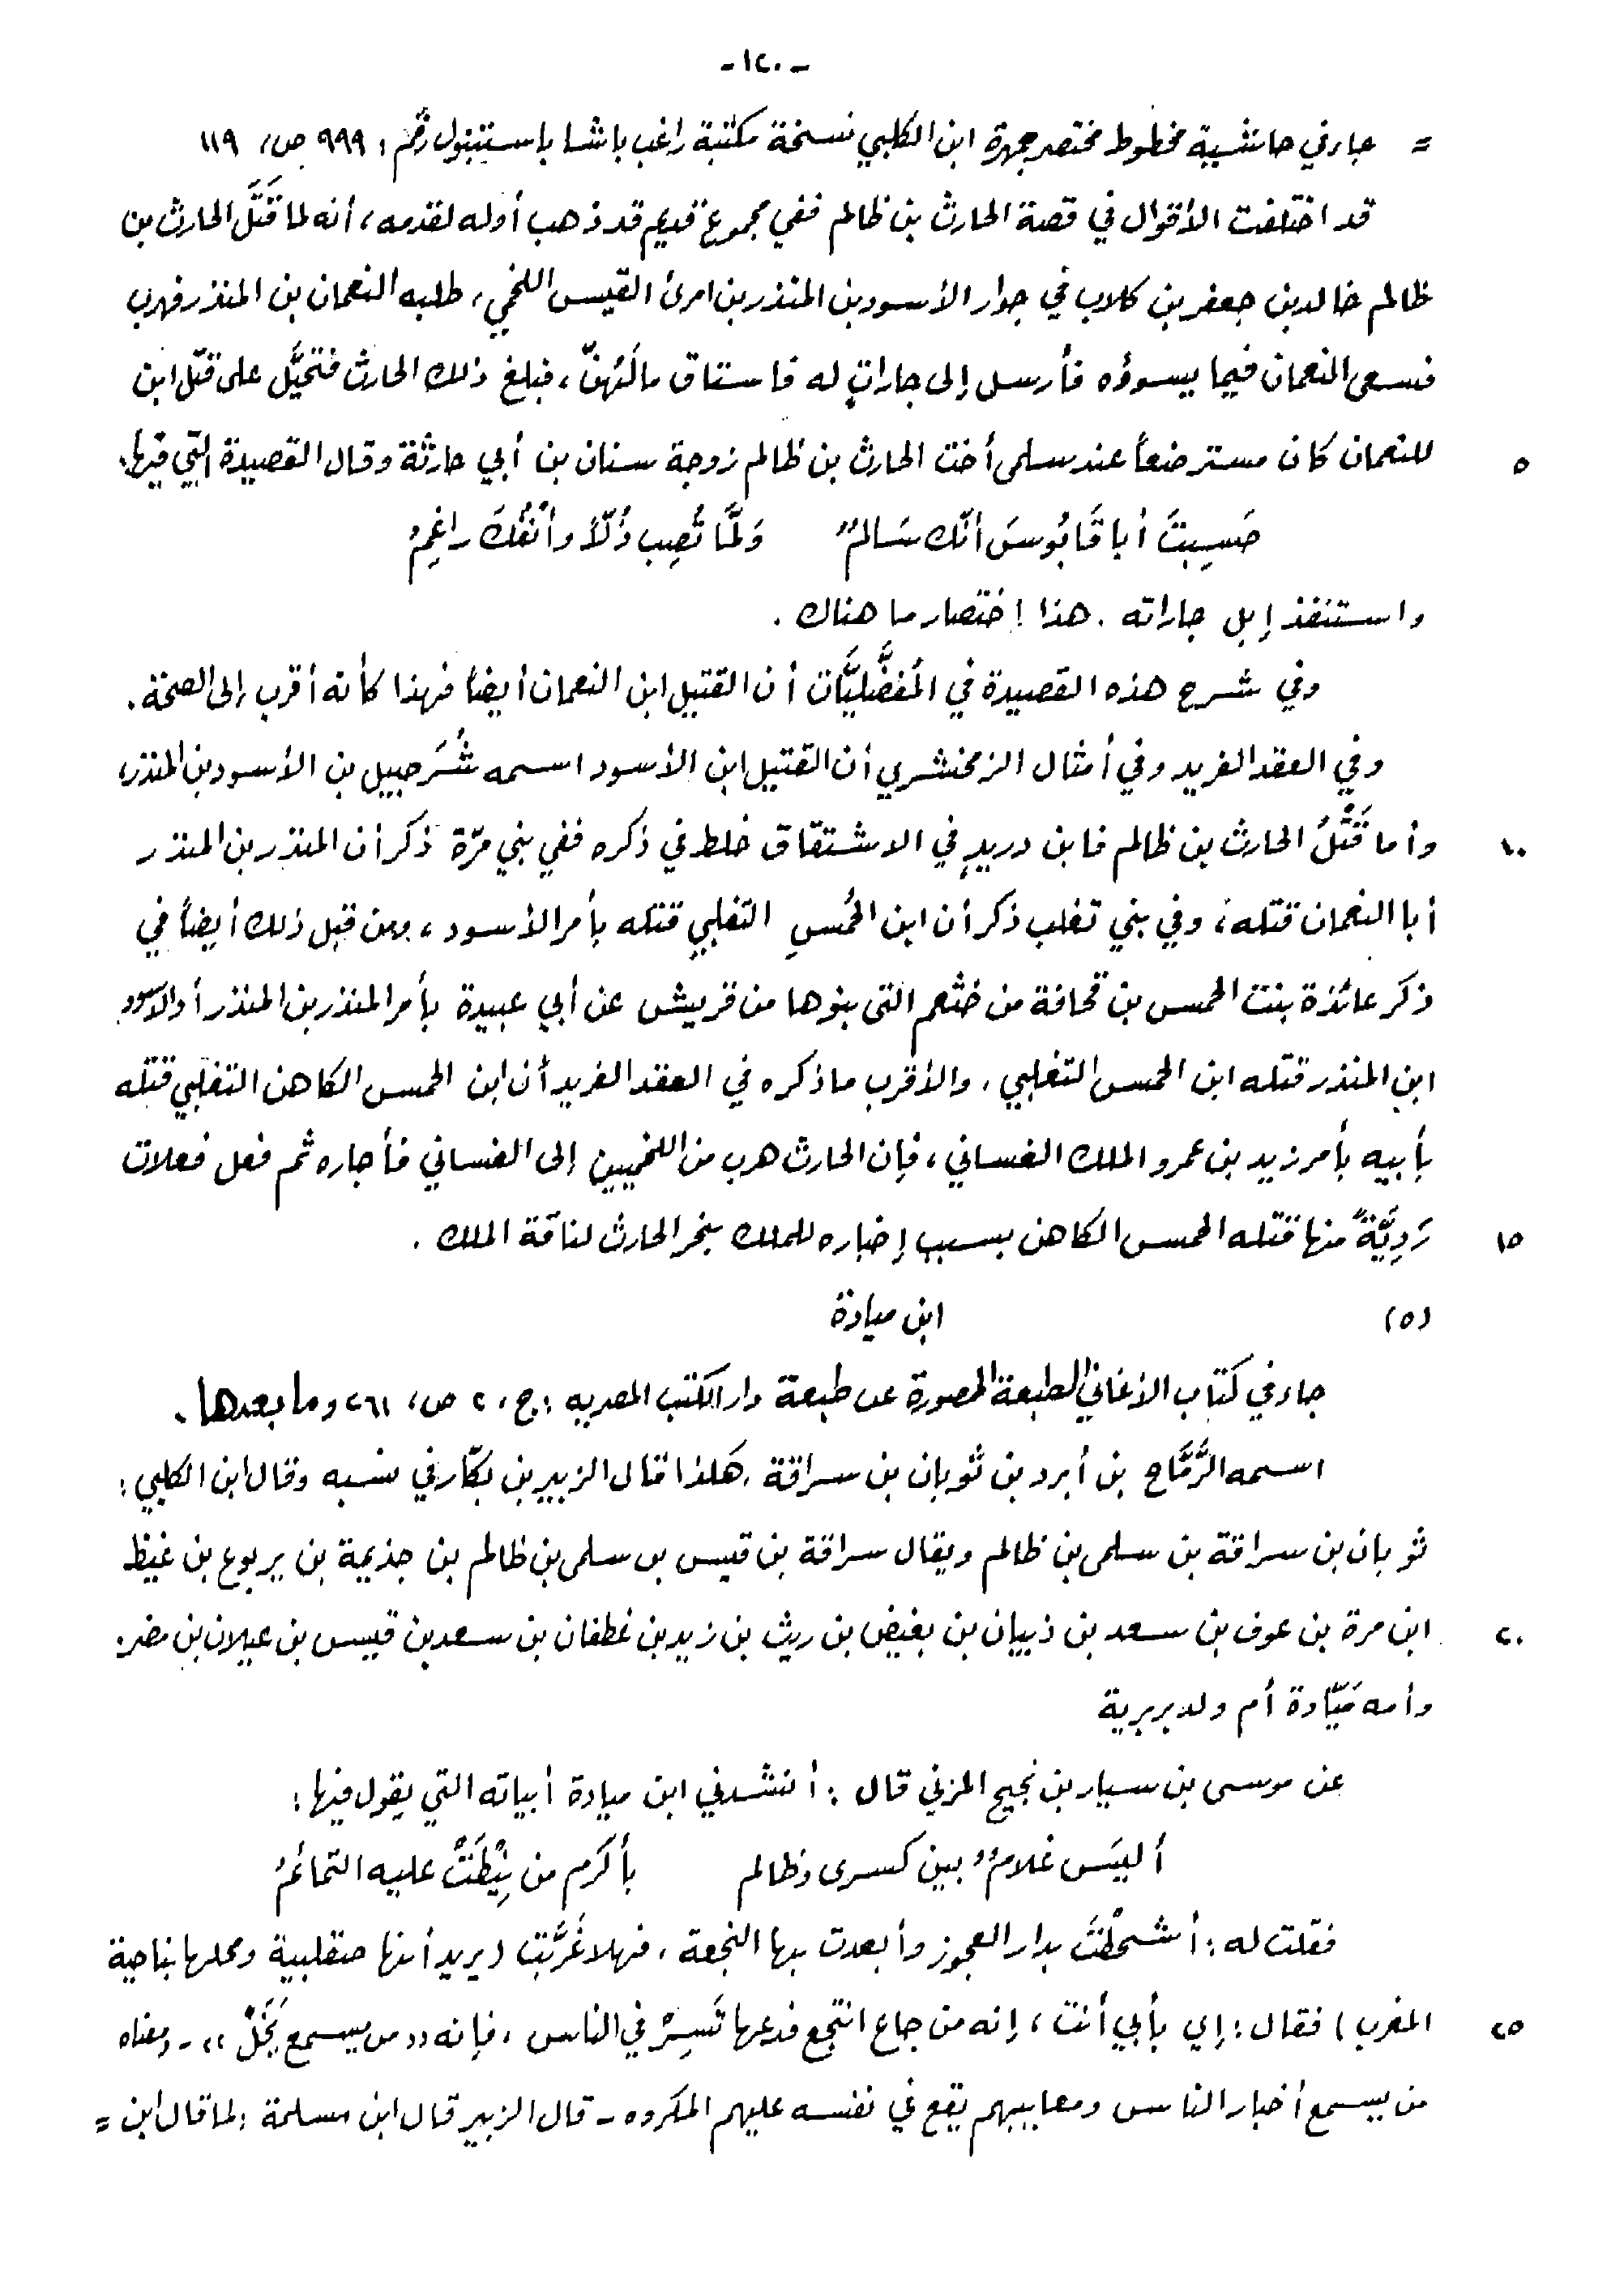 -١٢٠-
= جاء في حاشية مخطوط مختصر جمهرة ابن الكلبي نسخة مكتبة راغب باشا باستنبول رقم: ٩٩٩ ص، ١١٩
قد اختلفت الأقوال في قصة الحارث بن ظالم ففي مجموع قديم قد ذهب أوله لقدمه، أنه لما قَتَلَ الحارث بن
ظالم خالد بن جعفر بن كلاب في جوار الأسود بن المنذر بن امرئ القيس اللخمي، طلبه النعمان بن المنذر فهرب
فسعى النعمان فيما يسوؤه فأرسل إلى جاراتٍ له فاستاق مالَهُنَّ، فبلغ ذلك الحارث فتحيَّل على قتل ابن
٥ للنعمان كان مسترضعاً عند سلمى أخت الحارث بن ظالم زوجة سنان بن أبي حارثة وقال القصيدة التي فيها:
حَسِبتَ أبا قَابُوسَ أنّك سَالمٌ وَلمَّا تُصِب ذُلّاً وأنْفُكَ راغِمُ
واستنقذ إبل جاراته. هذا إختصار ما هناك.
وفي شرح هذه القصيدة في المُفضَّليَّات أن القتيل ابن النعمان أيضاً فهذا كأنه أقرب إلى الصحة.
وفي العقد الفريد وفي أمثال الزمخشري أن القتيل ابن الأسود اسمه شُرَحبيل بن الأسود بن المنذر،
١٠ وأما قَتْلُ الحارث بن ظالم فابن دريدٍ في الاشتقاق خلط في ذكره ففي بني مرّة ذكر أن المنذر بن المنذر
أبا النعمان قتله، وفي بني تغلب ذكر أن ابن الخُمسِ التغلبي قتله بأمر الأسود، ومن قبل ذلك أيضاً في
ذكر عائذة بنت الخمس بن قحافة من خثعم التي بنوها من قريش عن أبي عبيدة بأمر المنذر بن المنذر أو الأسود
ابن المنذر قتله ابن الخمس التغلبي، والأقرب ما ذكره في العقد الفريد أن ابن الخمس الكاهن التغلبي قتله
بأبيه بأمر زيد بن عمرو الملك الغساني، فإن الحارث هرب من اللخميين إلى الغساني فأجاره ثم فعل فعلات
١٥ رَدِيَّةً منها قتله الخمس الكاهن بسبب إخباره للملك بنحر الحارث لناقة الملك.
(٥) ابن ميادة
جاء في كتاب الأغاني الطبعة المصورة عن طبعة دار الكتب المصريه: ج، ٢ ص، ٢٦١ وما بعدها.
اسمه الرَّمَّاح بن أبرد بن ثوبان بن سراقة، هكذا قال الزبير بن بكّار في نسبه وقال ابن الكلبي:
ثوبان بن سراقة بن سلمى بن ظالم ويقال سراقة بن قيس بن سلمى بن ظالم بن جذيمة بن يربوع بن غيظ
٢٠ ابن مرة بن عوف بن سعد بن ذبيان بن بغيض بن ريث بن زيد بن غطفان بن سعد بن قيس بن عيلان بن مضر.
وأمه مَيَّادة أم ولد بربرية
عن موسى بن سيار بن نجيح المزني قال: أنشدني ابن ميادة أبياته التي يقول فيها:
أليَس غلامٌ بين كسرى وظالم بأكرم من نِيْطَتْ عليه التمائمُ
فقلت له: أشحطْتَ بدار العجوز وأبعدت بها النجعة، فهلا غرَّبتَ (يريد أنها صقلبية ومحلها بناحية
٢٥ المغرب) فقال: إي بأبي أنت، إنه من جاع انتجع فدعها تَسِرْ في الناس، فإنه «من يسمع يَخَلْ» - ومعناه
من يسمع أخبار الناس ومعايبهم يقع في نفسه عليهم المكروه - قال الزبير قال ابن مسلمة: لما قال ابن =